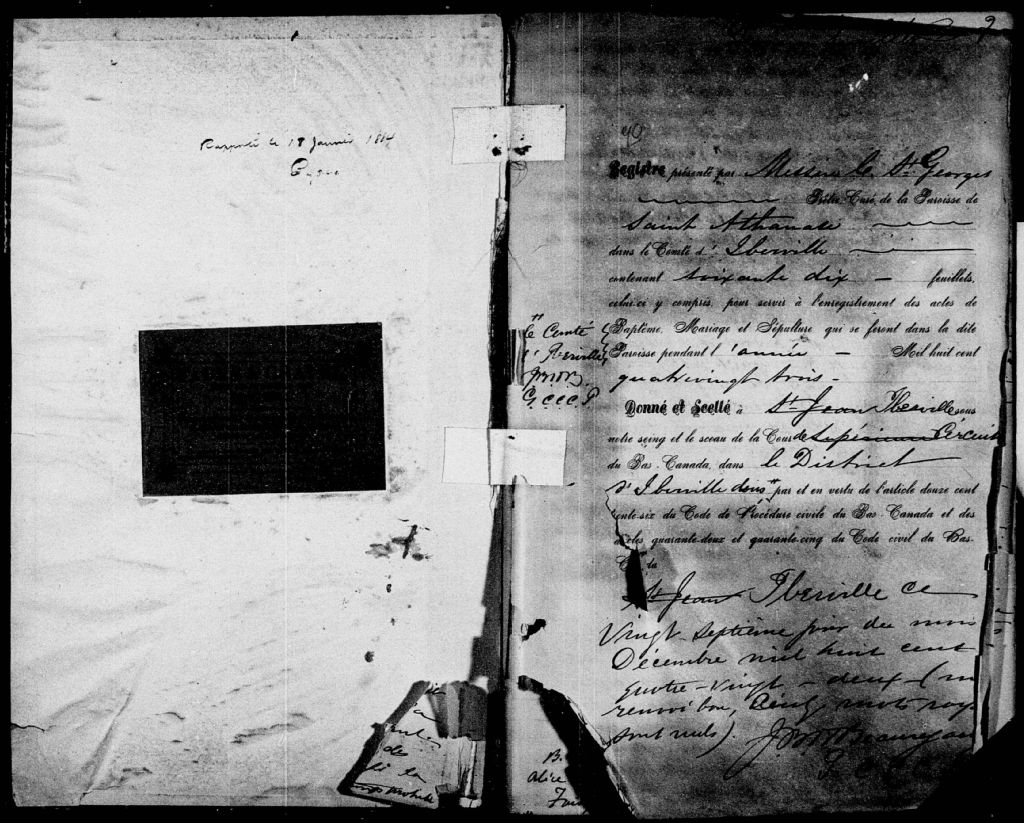 Rapporté le 18 Janvier 1884
9
90
Registre présenté par Messire le St Georges
Prêtre Curé de la Paroisse de
Saint Athanase
dans le Comté d'Iberville
contenant soixante dix — feuillets,
celui-ci y compris, pour servir à l'enregistrement des actes de
Baptême, Mariage et Sépulture qui se feront dans la dite
Paroisse pendant l'année — Mil huit cent
quatrevingt trois -
le Comté
d'Iberville
G.C.C.C.P
Donné et Scellé à St Jean Iberville sous
notre seing et le sceau de la Cour de Supérieure Circuit
du Bas-Canada, dans le District
d'Iberville dans " par et en vertu de l'article douze cent
trente-six du Code de Procédure civile du Bas-Canada et des
articles quarante-deux et quarante-cinq du Code civil du Bas-
St Jean Iberville ce
Vingt septième jour du mois
Décembre mil huit cent
quatre-vingt-deux (un
renvoi bon, Cinq mots rayés
sont nuls).
des
de la
B.
alice